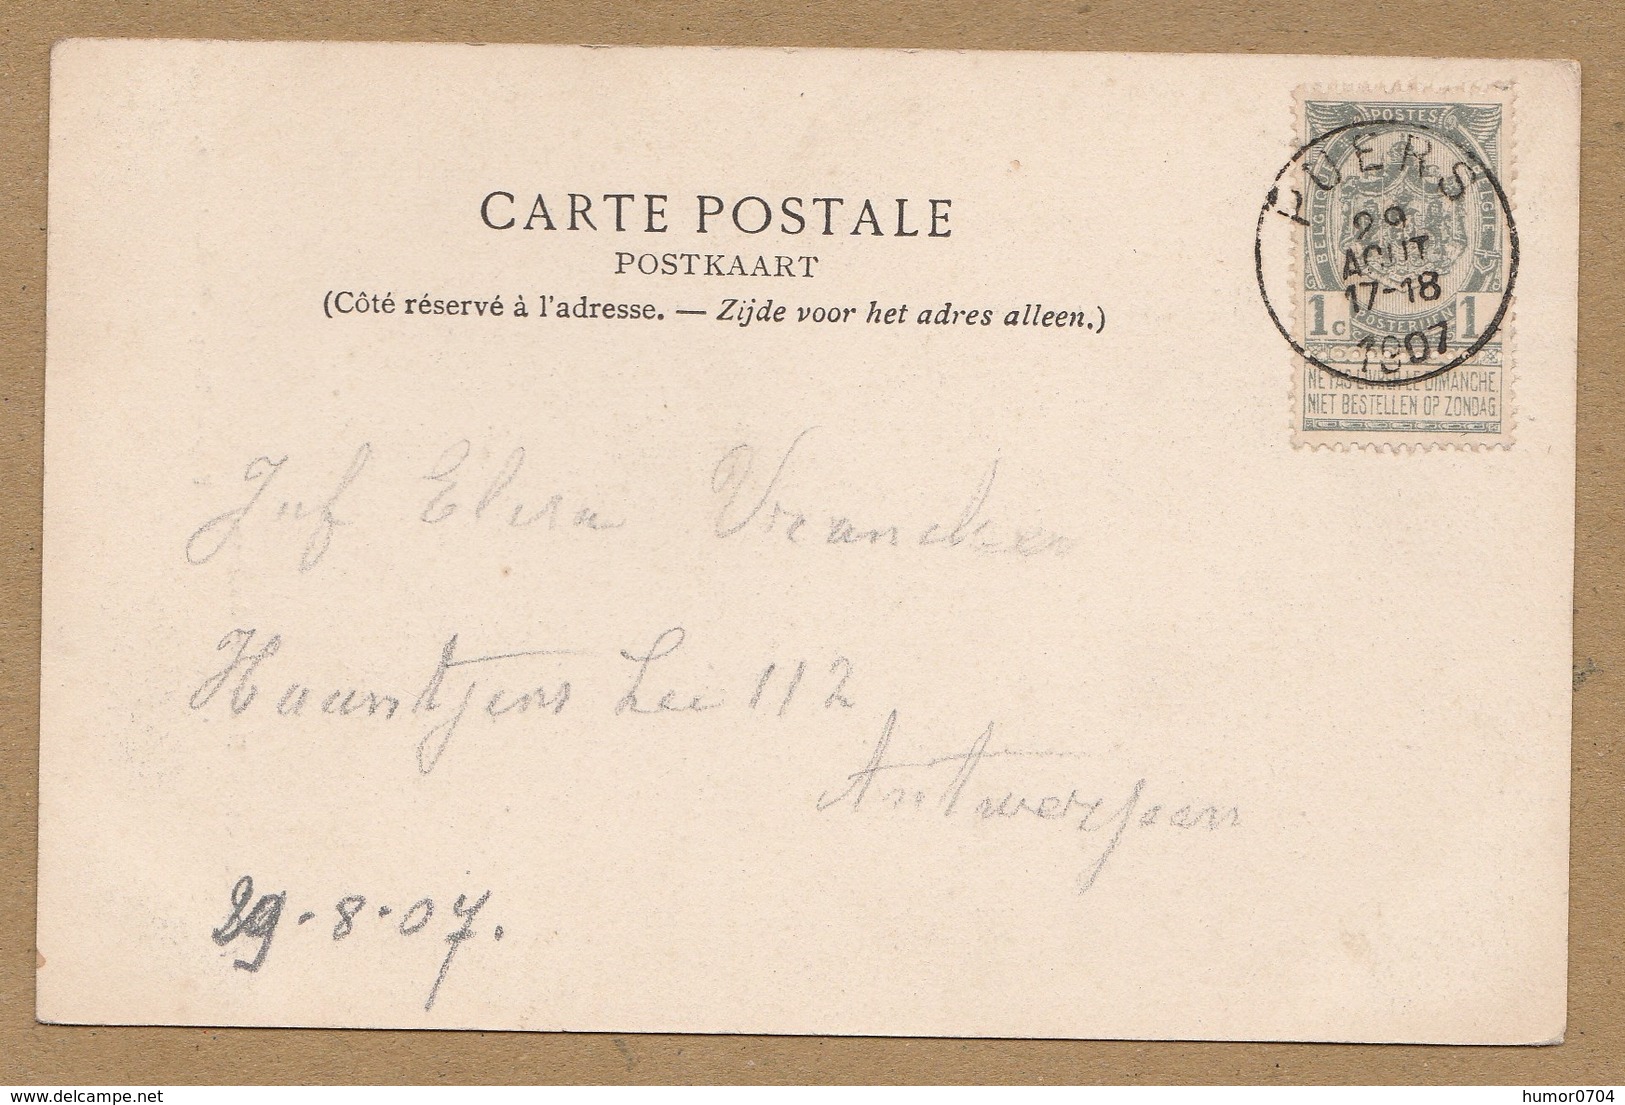 CARTE POSTALE
POSTKAART
(Côté réservé à l'adresse. — Zijde voor het adres alleen.)
POSTES
BELGIQUE BELGIE
PUERS
29
AOUT
17-18
1907
1c POSTERIJEN 1c
NE PAS LIVRER LE DIMANCHE
NIET BESTELLEN OP ZONDAG
Juf Elisa Vrancken
Haantjens Lei 112
Antwerpen
29.8.07.
delcampe.net
humor0704